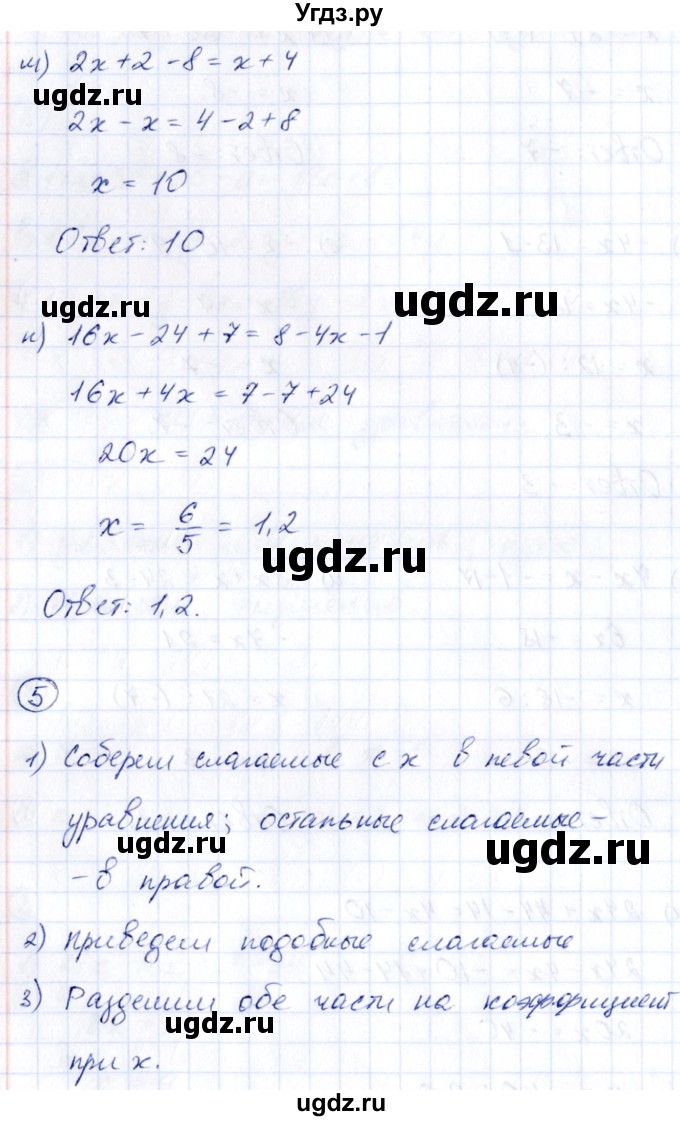 Угдз.ру
м) 2x + 2 - 8 = x + 4
ugdz.ru
2x - x = 4 - 2 + 8
x = 10
Ответ: 10
ugdz.ru
ugdz.ru
н) 16x - 24 + 7 = 8 - 4x - 1
16x + 4x = 7 - 7 + 24
ugdz.ru
20x = 24
x = 6/5 = 1,2
ugdz.ru
Ответ: 1,2.
5
1) Соберем слагаемые с x в левой части
уравнения; остальные слагаемые -
ugdz.ru
ugdz.ru
- в правой.
2) Приведем подобные слагаемые
3) Разделим обе части на коэффициент
ugdz.ru
при x.
ugdz.ru